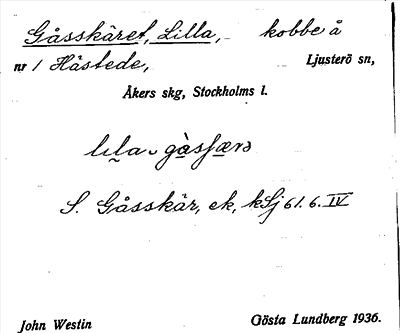 Gåsskäret, Lilla, kobbe å
nr 1 Håstede, Ljusterö sn,
Åkers skg, Stockholms l.
S. Gåsskär, ek, kSj 61.6.IV
John Westin Gösta Lundberg 1936.